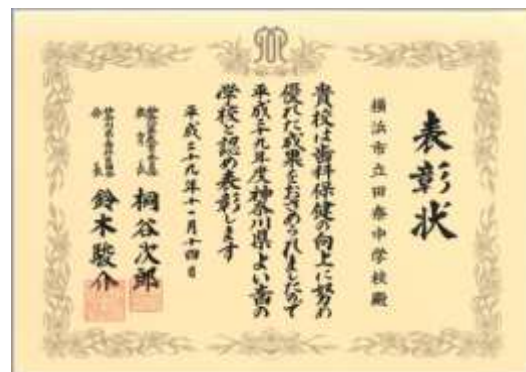 表彰状
横浜市立田奈中学校殿
貴校は歯科保健の向上に努め
優れた成果をおさめられましたので
平成二十九年度神奈川県よい歯の
学校と認め表彰します
平成二十九年十一月十四日
神奈川県教育委員会
教育長 桐谷次郎
会長 鈴木駿介